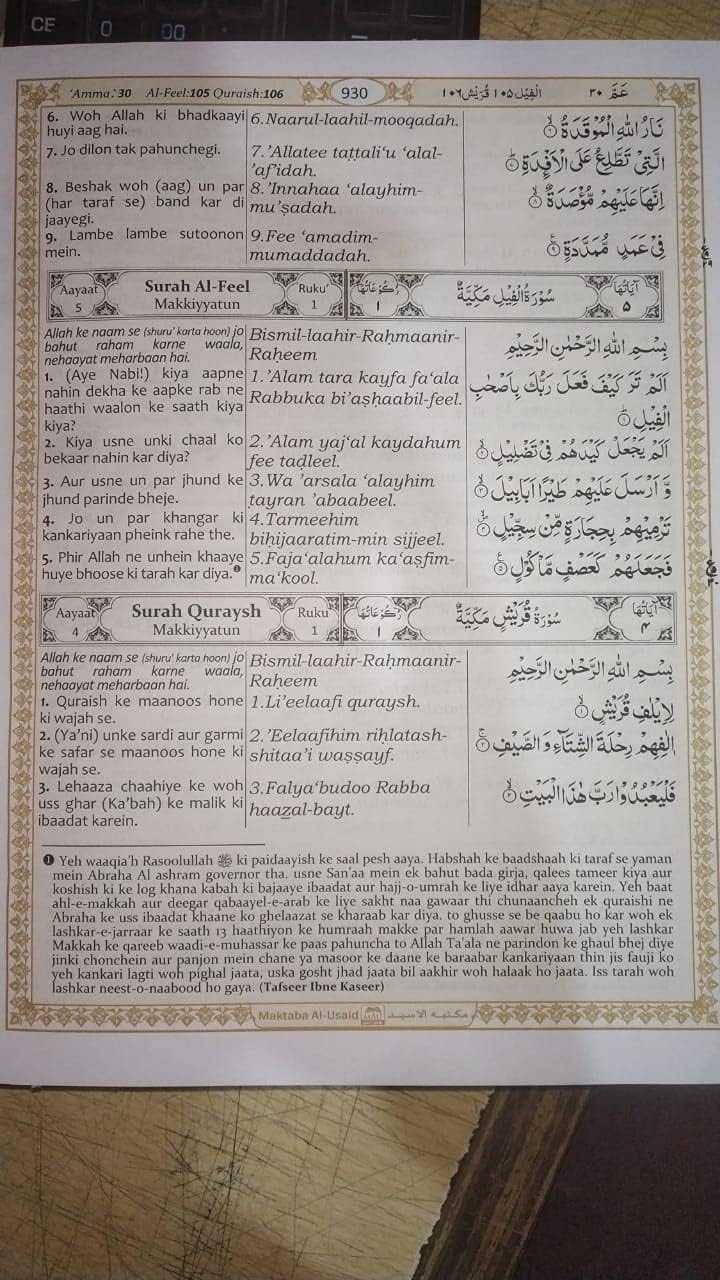 CE 0 00
'Amma:30 Al-Feel:105 Quraish:106
930
الفيل ١٠٥ قريش ١٠٦
عم ٣٠
6. Woh Allah ki bhadkaayi
huyi aag hai.
7. Jo dilon tak pahunchegi.
8. Beshak woh (aag) un par
(har taraf se) band kar di
jaayegi.
9. Lambe lambe sutoonon
mein.
6.Naarul-laahil-mooqadah.
7.'Allatee taṭṭali'u 'alal-
'af'idah.
8.'Innahaa 'alayhim-
mu'ṣadah.
9.Fee 'amadim-
mumaddadah.
نَارُ اللّٰهِ الْمُوْقَدَةُ ۙ﴿٦﴾
الَّتِيْ تَطَّلِعُ عَلَى الْاَفْـِٕدَةِ ؕ﴿٧﴾
اِنَّهَا عَلَيْهِمْ مُّؤْصَدَةٌ ۙ﴿٨﴾
فِيْ عَمَدٍ مُّمَدَّدَةٍ ﴿٩﴾
Aayaat
5
Surah Al-Feel
Makkiyyatun
Ruku'
1
رُكُوْعَاتُهَا
١
سُوْرَةُ الْفِيْلِ مَكِّيَّةٌ
اٰيَاتُهَا
٥
Allah ke naam se (shuru' karta hoon) jo
bahut raham karne waala,
nehaayat meharbaan hai.
1. (Aye Nabi!) kiya aapne
nahin dekha ke aapke rab ne
haathi waalon ke saath kiya
kiya?
2. Kiya usne unki chaal ko
bekaar nahin kar diya?
3. Aur usne un par jhund ke
jhund parinde bheje.
4. Jo un par khangar ki
kankariyaan pheink rahe the.
5. Phir Allah ne unhein khaaye
huye bhoose ki tarah kar diya.❶
Bismil-laahir-Raḥmaanir-
Raḥeem
1.'Alam tara kayfa fa'ala
Rabbuka bi'aṣḥaabil-feel.
2.'Alam yaj'al kaydahum
fee taḍleel.
3.Wa 'arsala 'alayhim
tayran 'abaabeel.
4.Tarmeehim
biḥijaaratim-min sijjeel.
5.Faja'alahum ka'aṣfim-
ma'kool.
بِسْمِ اللّٰهِ الرَّحْمٰنِ الرَّحِيْمِ
اَلَمْ تَرَ كَيْفَ فَعَلَ رَبُّكَ بِاَصْحٰبِ
الْفِيْلِ ؕ﴿١﴾
اَلَمْ يَجْعَلْ كَيْدَهُمْ فِيْ تَضْلِيْلٍ ۙ﴿٢﴾
وَّ اَرْسَلَ عَلَيْهِمْ طَيْرًا اَبَابِيْلَ ۙ﴿٣﴾
تَرْمِيْهِمْ بِحِجَارَةٍ مِّنْ سِجِّيْلٍ ۙ﴿٤﴾
فَجَعَلَهُمْ كَعَصْفٍ مَّاْكُوْلٍ ﴿٥﴾
Aayaat
4
Surah Quraysh
Makkiyyatun
Ruku
1
رُكُوْعَاتُهَا
١
سُوْرَةُ قُرَيْشٍ مَكِّيَّةٌ
اٰيَاتُهَا
٤
Allah ke naam se (shuru' karta hoon) jo
bahut raham karne waala,
nehaayat meharbaan hai.
1. Quraish ke maanoos hone
ki wajah se.
2. (Ya'ni) unke sardi aur garmi
ke safar se maanoos hone ki
wajah se.
3. Lehaaza chaahiye ke woh
uss ghar (Ka'bah) ke malik ki
ibaadat karein.
Bismil-laahir-Raḥmaanir-
Raḥeem
1.Li'eelaafi quraysh.
2.'Eelaafihim riḥlatash-
shitaa'i waṣṣayf.
3.Falya'budoo Rabba
haaẕal-bayt.
بِسْمِ اللّٰهِ الرَّحْمٰنِ الرَّحِيْمِ
لِاِيْلٰفِ قُرَيْشٍ ۙ﴿١﴾
اٖلٰفِهِمْ رِحْلَةَ الشِّتَآءِ وَ الصَّيْفِ ۚ﴿٢﴾
فَلْيَعْبُدُوْا رَبَّ هٰذَا الْبَيْتِ ۙ﴿٣﴾
❶ Yeh waaqia'h Rasoolullah ﷺ ki paidaayish ke saal pesh aaya. Habshah ke baadshaah ki taraf se yaman
mein Abraha Al ashram governor tha. usne San'aa mein ek bahut bada girja, qalees tameer kiya aur
koshish ki ke log khana kabah ki bajaaye ibaadat aur hajj-o-umrah ke liye idhar aaya karein. Yeh baat
ahl-e-makkah aur deegar qabaayel-e-arab ke liye sakht naa gawaar thi chunaancheh ek quraishi ne
Abraha ke uss ibaadat khaane ko ghelaazat se kharaab kar diya. to ghusse se be qaabu ho kar woh ek
lashkar-e-jarraar ke saath 13 haathiyon ke humraah makke par hamlah aawar huwa jab yeh lashkar
Makkah ke qareeb waadi-e-muhassar ke paas pahuncha to Allah Ta'ala ne parindon ke ghaul bhej diye
jinki chonchein aur panjon mein chane ya masoor ke daane ke baraabar kankariyaan thin jis fauji ko
yeh kankari lagti woh pighal jaata, uska gosht jhad jaata bil aakhir woh halaak ho jaata. Iss tarah woh
lashkar neest-o-naabood ho gaya. (Tafseer Ibne Kaseer)
Maktaba Al-Usaid
مكتبه الاسيد